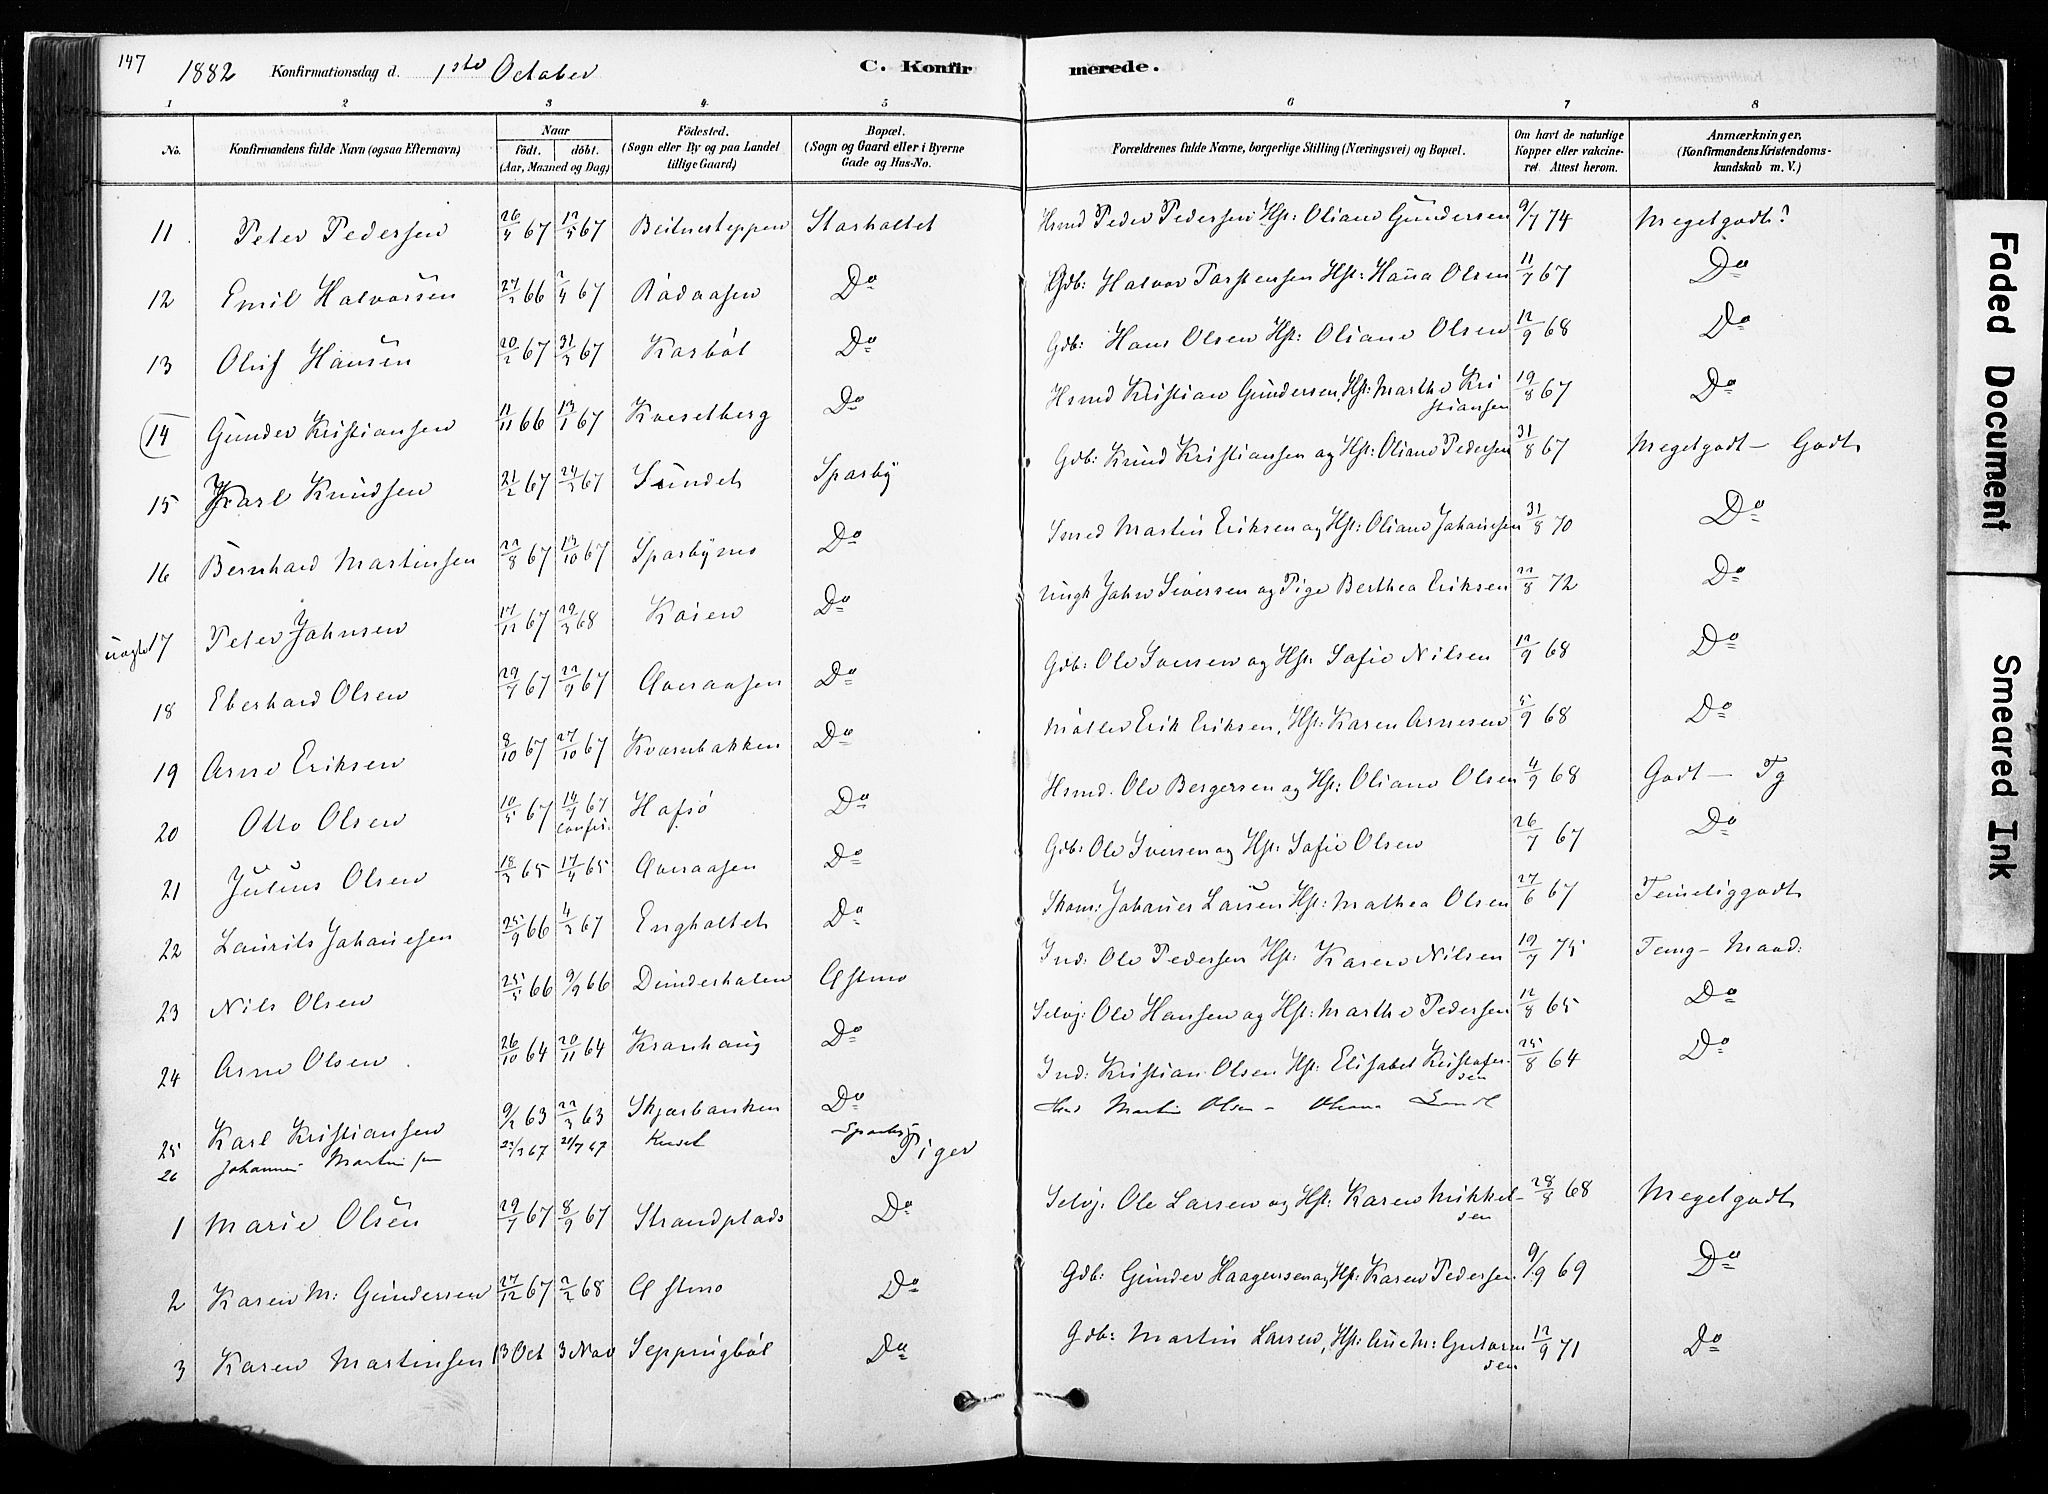 147
1882 Konfirmationsdag d. 1ste October C. Konfirmerede.
1 2 3 4 5 6 7 8
No. Konfirmandens fulde Navn (ogsaa Efternavn) Naar födt. döbt. (Aar, Maaned og Dag) Födested. (Sogn eller By og paa Landet tillige Gaard) Bopæl. (Sogn og Gaard eller i Byerne Gade og Hus-No. Forældrenes fulde Navne, borgerlige Stilling (Næringsvei) og Bopæl. Om havt de naturlige Kopper eller vakcineret. Attest herom. Anmærkninger. (Konfirmandens Kristendomskundskab m. V.)
11 Peter Pedersen 26/4 67 12/5 67 Storholtet Hsmd Peder Pedersen Hst: Oliane Gundersen 9/7 74 Megetgodt?
12 Emil Halvorsen 66 67 Rödaasen Do Gdb: Halvor Torstensen Hst: Hanna Olsen 11/7 67 Do
13 Oluf Hansen 20/2 67 31/3 67 Karböl Do Gdb: Hans Olsen Hst: Oliane Olsen 12/9 68 Do
14 Gunder Kristiansen 11/11 66 13/1 67 Kveselberg Do Hsmd Kristian Gundersen, Hst: Marthe Kristiansen 19/8 67 Do
15 Karl Knudsen 21/2 67 24/3 67 Sundet Sparby Gdb: Knud Kristiansen og Hst: Oliane Pedersen 31/8 67 Megetgodt - Godt
16 Bernhard Martinsen 22/8 67 13/10 67 Sparbymo Do Smed Martin Eriksen og Hst: Oliane Johannesen 31/8 70 Do
uægte 17 Peter Johnsen 17/12 67 29/3 68 Koien Do Ungk John Siversen og Pige Berthea Eriksen 22/8 72 Do
18 Eberhard Olsen 29/7 67 22/9 67 Overaasen Do Gdb: Ole Iversen og Hst: Sofie Nilsen 12/9 68 Do
19 Arne Eriksen 8/10 67 27/10 67 Kvernbakken Do Möller Erik Eriksen, Hst: Karen Arnesen 5/9 68 Do
20 Otto Olsen 10/5 67 14/7 67 Hafsö Do Hsmd. Ole Bergersen og Hst: Oliane Olsen 4/9 68 Godt - Tg
21 Julius Olsen 18/3 65 17/4 65 Overaasen Do Gdb: Ole Iversen og Hst: Sofie Olsen 26/7 67 Do
22 Laurits Johannesen 25/9 66 4/3 67 Engholtet Do Skom: Johannes Larsen Hst: Mathea Olsen 27/6 67 Temeliggodt
23 Nils Olsen 25/5 66 9/9 66 Dunderholen Astmo Ind: Ole Pedersen Hst: Karen Nilsen 19/7 75 Temg - Maad:
24 Arne Olsen 26/10 64 20/11 64 Kranhaug Do Selvj: Ole Hansen og Hst: Marthe Pedersen 12/8 65 Do
25 Karl Kristiansen 9/2 63 22/3 63 Skjærbanken Do Ind: Kristian Olsen Hst: Elisabet Kristofersen 25/8 64 Do
26 Johannes Martinsen 67 67 Sparby Martin Olsen -
Piger
1 Marie Olsen 29/7 67 8/9 67 Strandplads Do Selvj: Ole Larsen og Hst: Karen Mikkelsen 28/8 68 Megetgodt
2 Karen M: Gundersen 27/12 67 2/2 68 Astmo Do Gdb: Gunder Haagensen og Hst: Karen Pedersen 9/9 69 Do
3 Karen Martinsen 13 Oct 3 Nov Seppingböl Do Gdb: Martin Larsen, Hst: Anne M: Gustavsen 12/9 71 Do
Faded Document
Smeared Ink